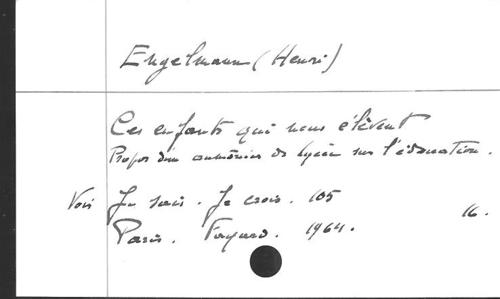 Engelmann (Henri)
Ces enfants qui nous élèvent
Propos d'un aumônier de lycée sur l'éducation.
Voir Je sais. Je crois. 105
16.
Paris. Fayard. 1964.